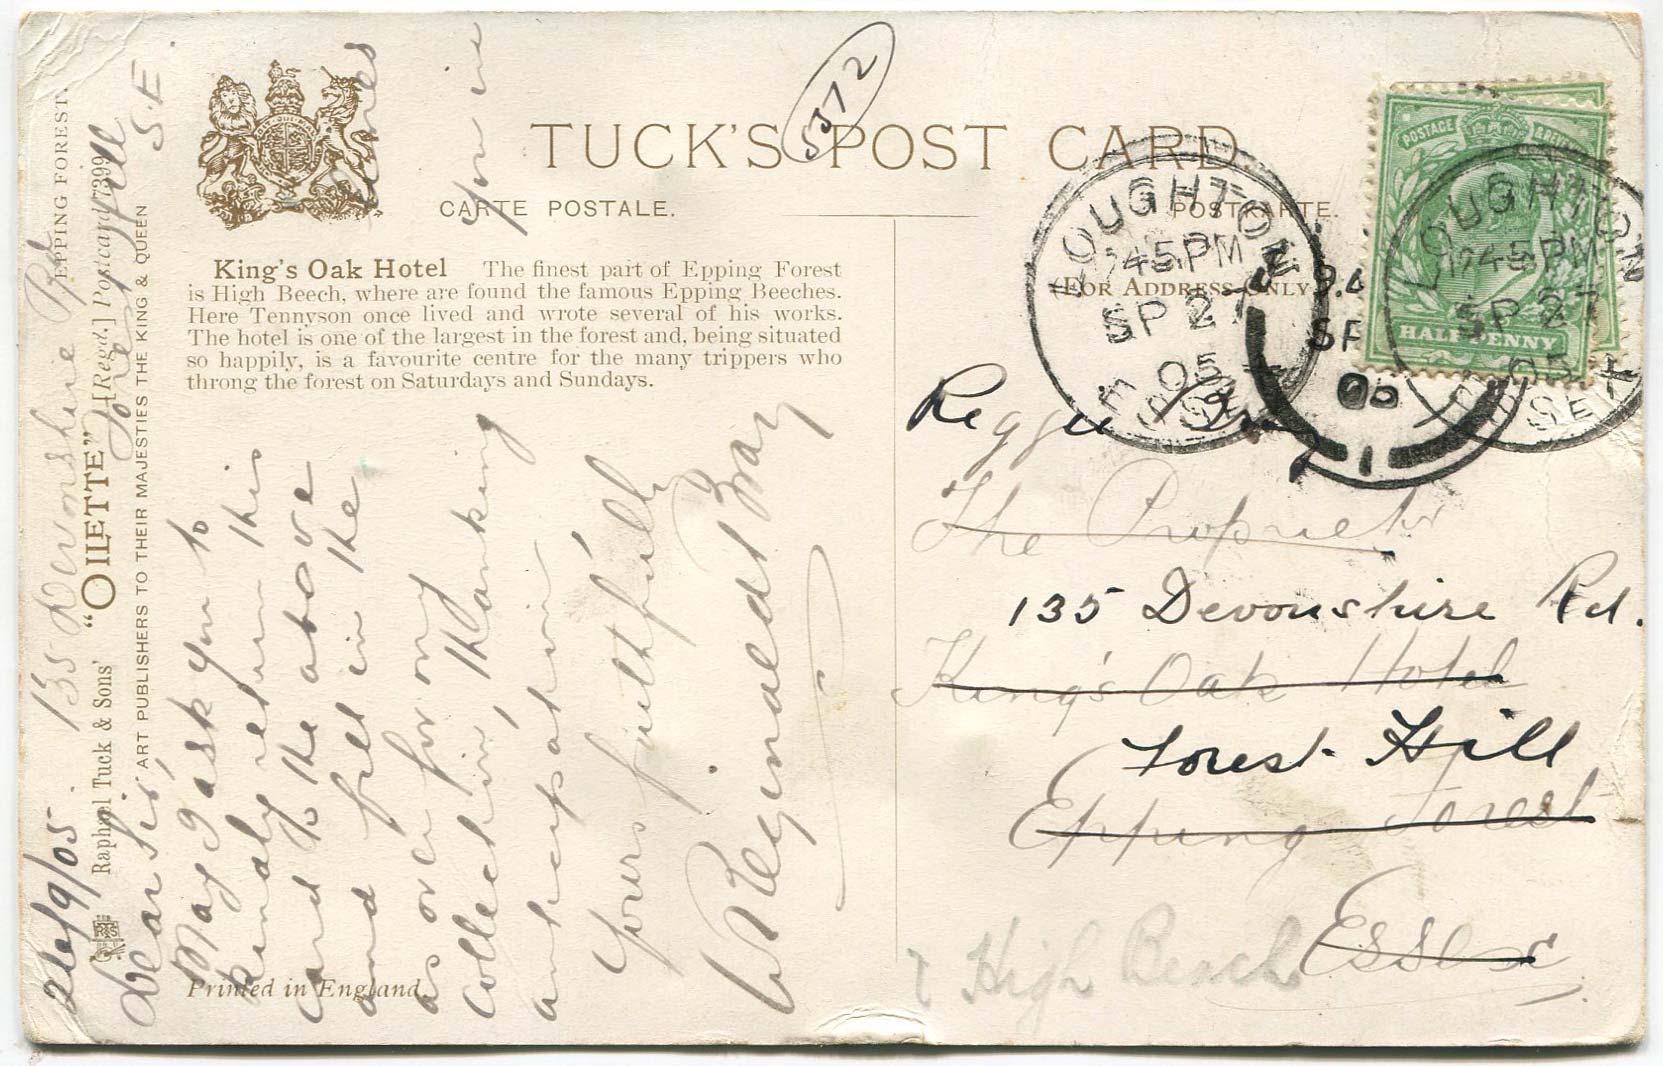 TUCK'S POST CARD
CARTE POSTALE.
POSTKARTE.
5372
King's Oak Hotel The finest part of Epping Forest
is High Beech, where are found the famous Epping Beeches.
Here Tennyson once lived and wrote several of his works.
The hotel is one of the largest in the forest and, being situated
so happily, is a favourite centre for the many trippers who
throng the forest on Saturdays and Sundays.
(FOR ADDRESS ONLY.)
Raphael Tuck & Sons' "OILETTE" [Regd.] Postcard 7399
EPPING FOREST.
ART PUBLISHERS TO THEIR MAJESTIES THE KING & QUEEN
Printed in England.
135 Devonshire Rd
Forest Hill
S.E.
26/9/05.
Dear Sir,
May I ask you to
kindly return this
card to the above
and fill in the
as over for my
collection, thanking
you in
anticipation,
Yours faithfully
W Reginald Bray
Reggie Bray
The Proprietor
135 Devonshire Rd.
King's Oak Hotel
Forest Hill
Epping Forest
Essex
? High Beach
POSTAGE & REVENUE
HALFPENNY
LOUGHTON
7.45PM
SP 27
05
ESSEX
LOUGHTON
7.45PM
SP 27
05
ESSEX
SP
05
1